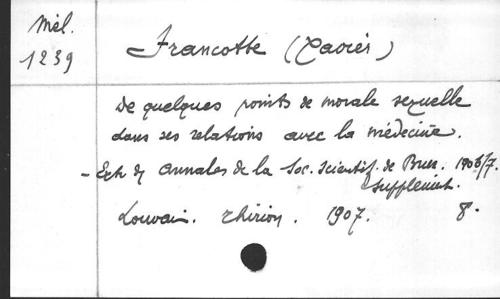 Mél.
1239
Francotte (Xavier)
De quelques points de morale sexuelle
dans ses relations avec la médecine.
- Extr. d. Annales de la Soc. Scientif. de Brux. 1906/7.
Supplément.
Louvain. Thirion. 1907. 8.